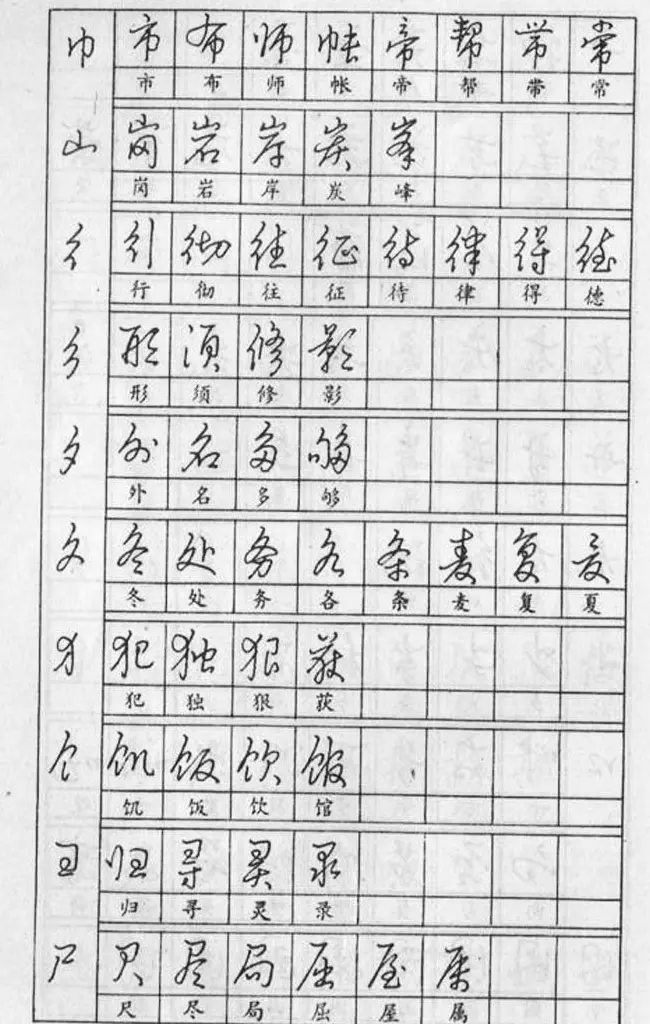 巾 市 布 师 帐 帝 帮 带 常
市 布 师 帐 帝 帮 带 常
山 岗 岩 岸 炭 峰
岗 岩 岸 炭 峰
彳 行 彻 往 征 待 律 得 德
行 彻 往 征 待 律 得 德
彡 形 须 修 影
形 须 修 影
夕 外 名 多 够
外 名 多 够
夂 冬 处 务 各 条 麦 复 夏
冬 处 务 各 条 麦 复 夏
犭 犯 独 狠 获
犯 独 狠 获
饣 饥 饭 饮 馆
饥 饭 饮 馆
彐 归 寻 灵 录
归 寻 灵 录
尸 尺 尽 局 屈 屋 属
尺 尽 局 屈 屋 属